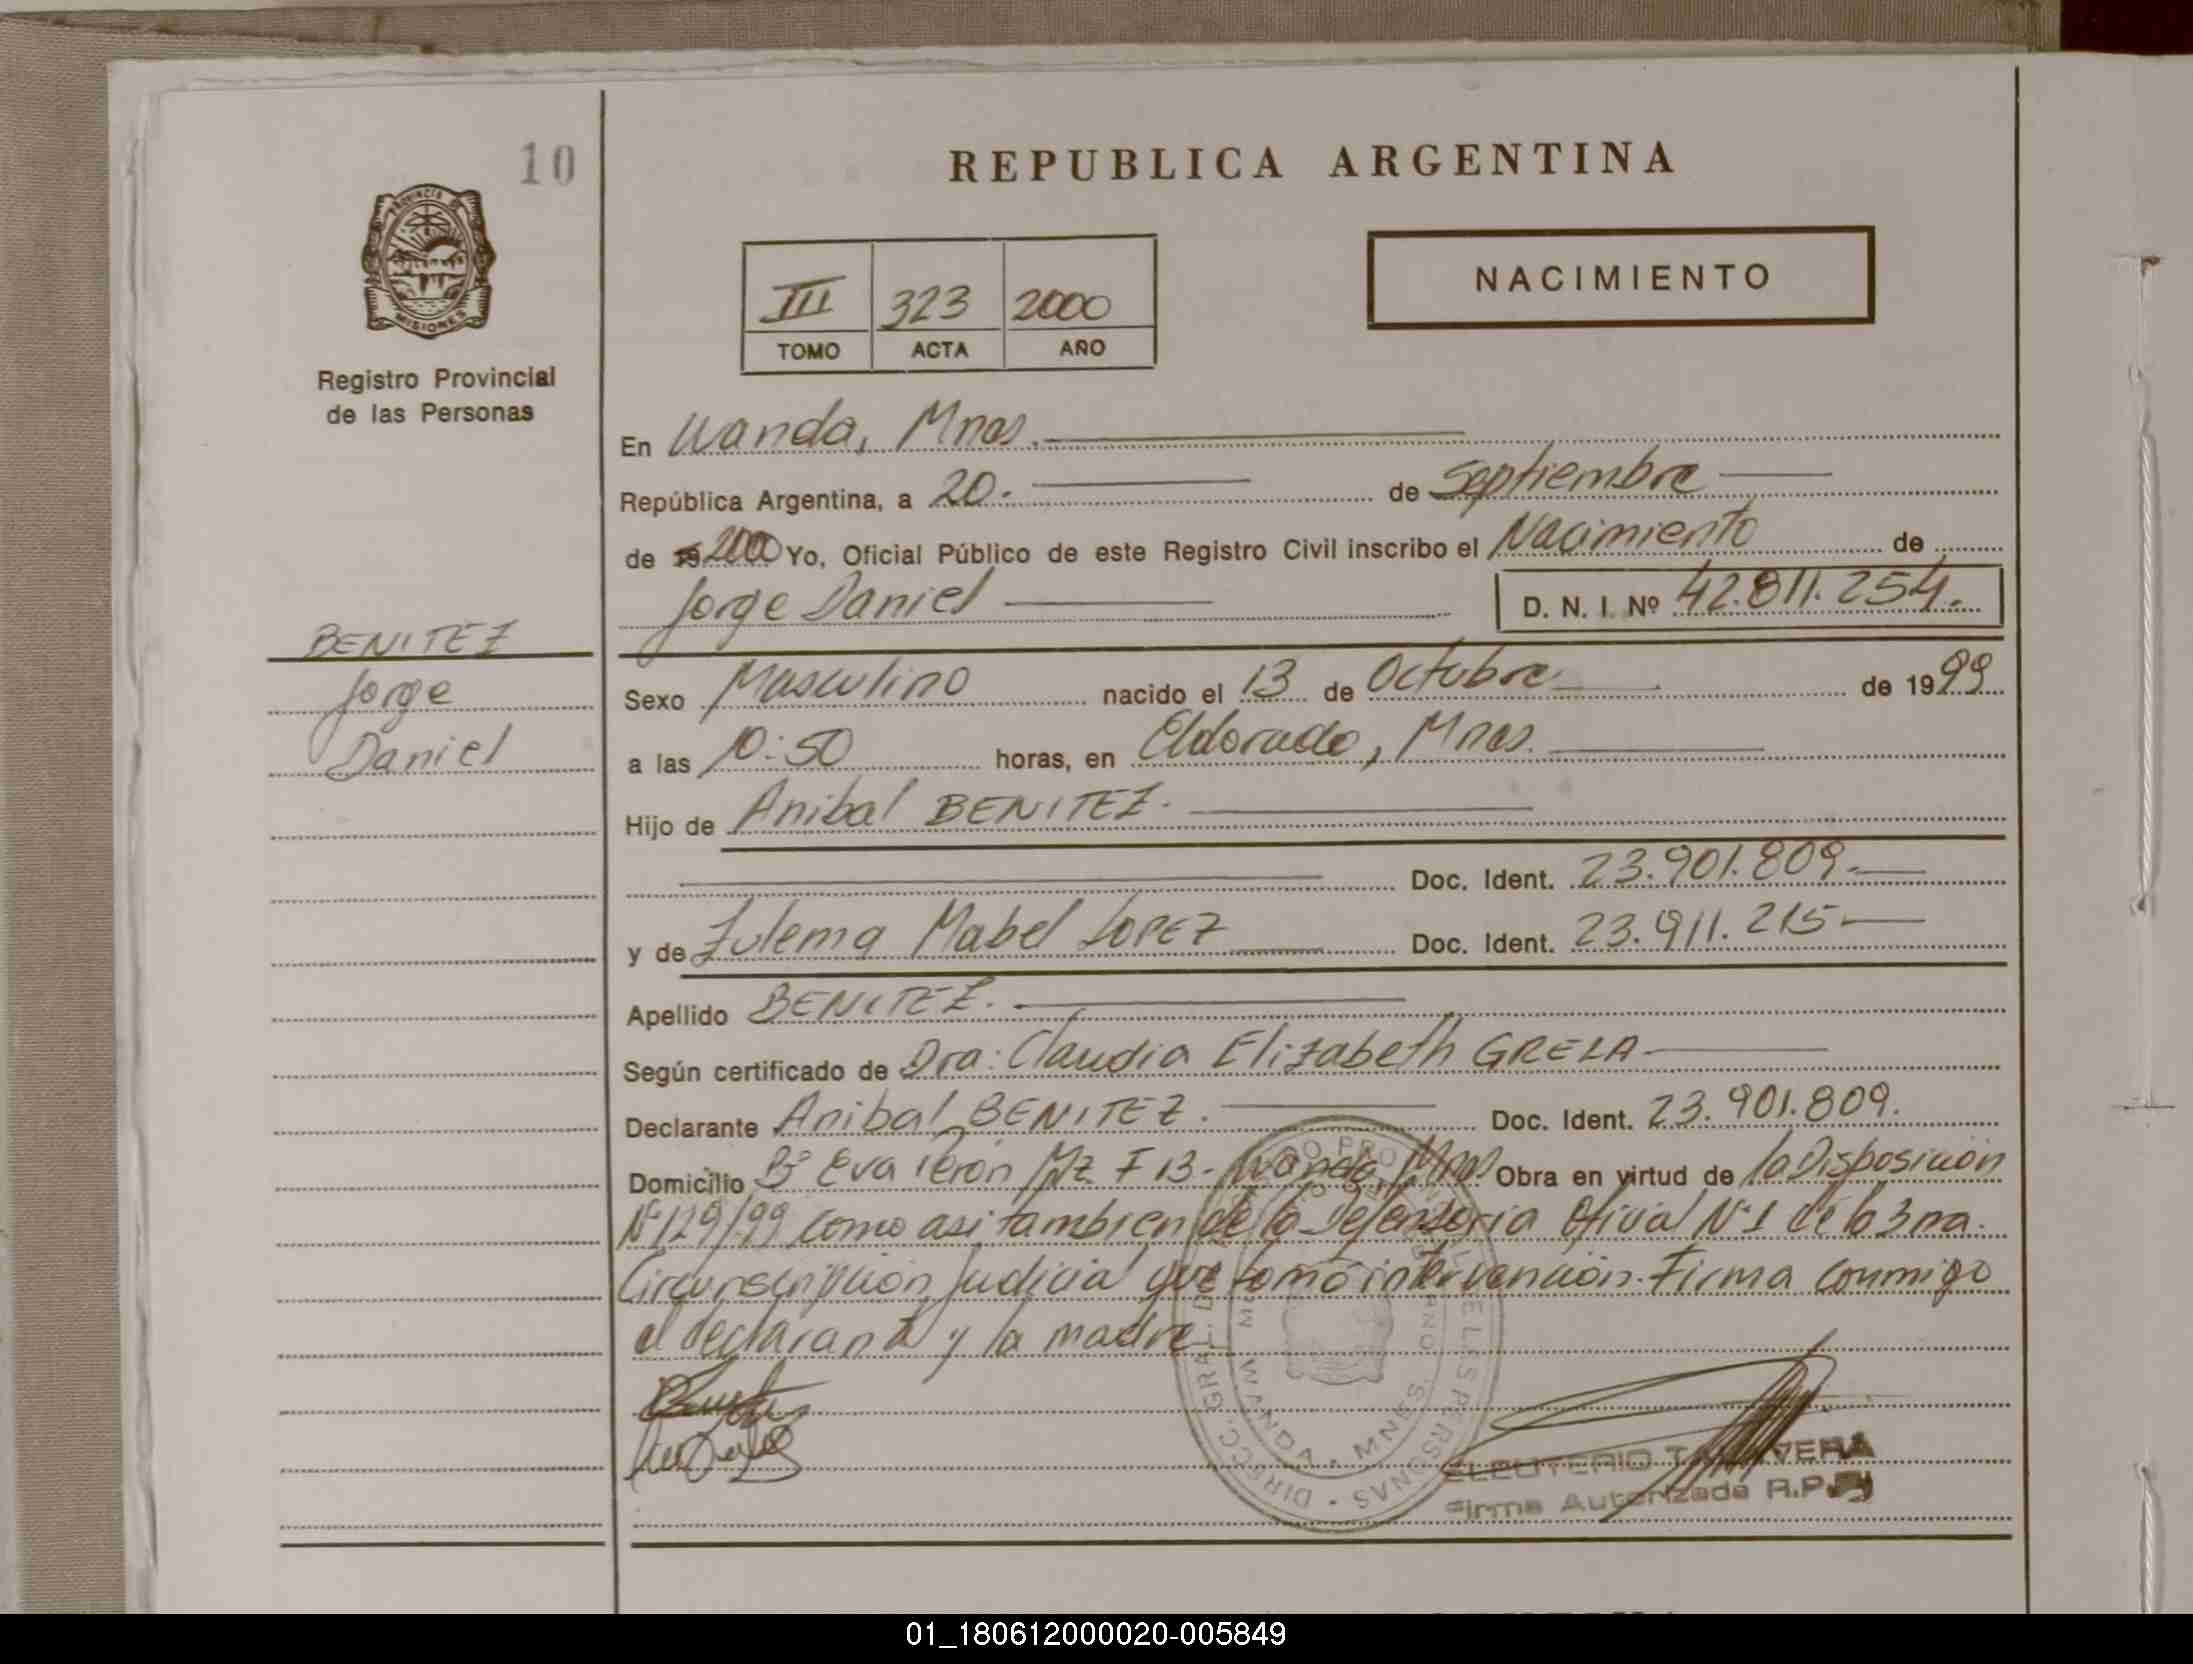 10
REPUBLICA ARGENTINA
PROVINCIA DE
MISIONES
Registro Provincial
de las Personas
III 323 2000
TOMO ACTA AÑO
NACIMIENTO
En Wanda, Mnes.
República Argentina, a 20. de Septiembre
de 19 2000 Yo, Oficial Público de este Registro Civil inscribo el Nacimiento de
Jorge Daniel D. N. I. Nº 42.811.254.
BENITEZ
Jorge
Daniel
Sexo Masculino nacido el 13 de Octubre de 1999
a las 10:50 horas, en Eldorado, Mnes.
Hijo de Anibal BENITEZ.
Doc. Ident. 23.901.809.
y de Zulema Mabel LOPEZ Doc. Ident. 23.911.215
Apellido BENITEZ.
Según certificado de Dra: Claudia Elizabeth GRELA
Declarante Anibal BENITEZ. Doc. Ident. 23.901.809.
Domicilio Bº Eva Perón Mz F 13 - Wanda, Mnes Obra en virtud de la Disposición
Nº 129/99 como asi tambien de la Defensoria Oficial Nº 1 de la 3ra.
Circunscripción Judicial que tomó intervención. Firma conmigo
el declarante y la madre
DIRECC. GRAL. DE LAS PERSONAS
WANDA - MNES.
ELEUTERIO TALAVERA
Firma Autorizada R.P.
01_180612000020-005849